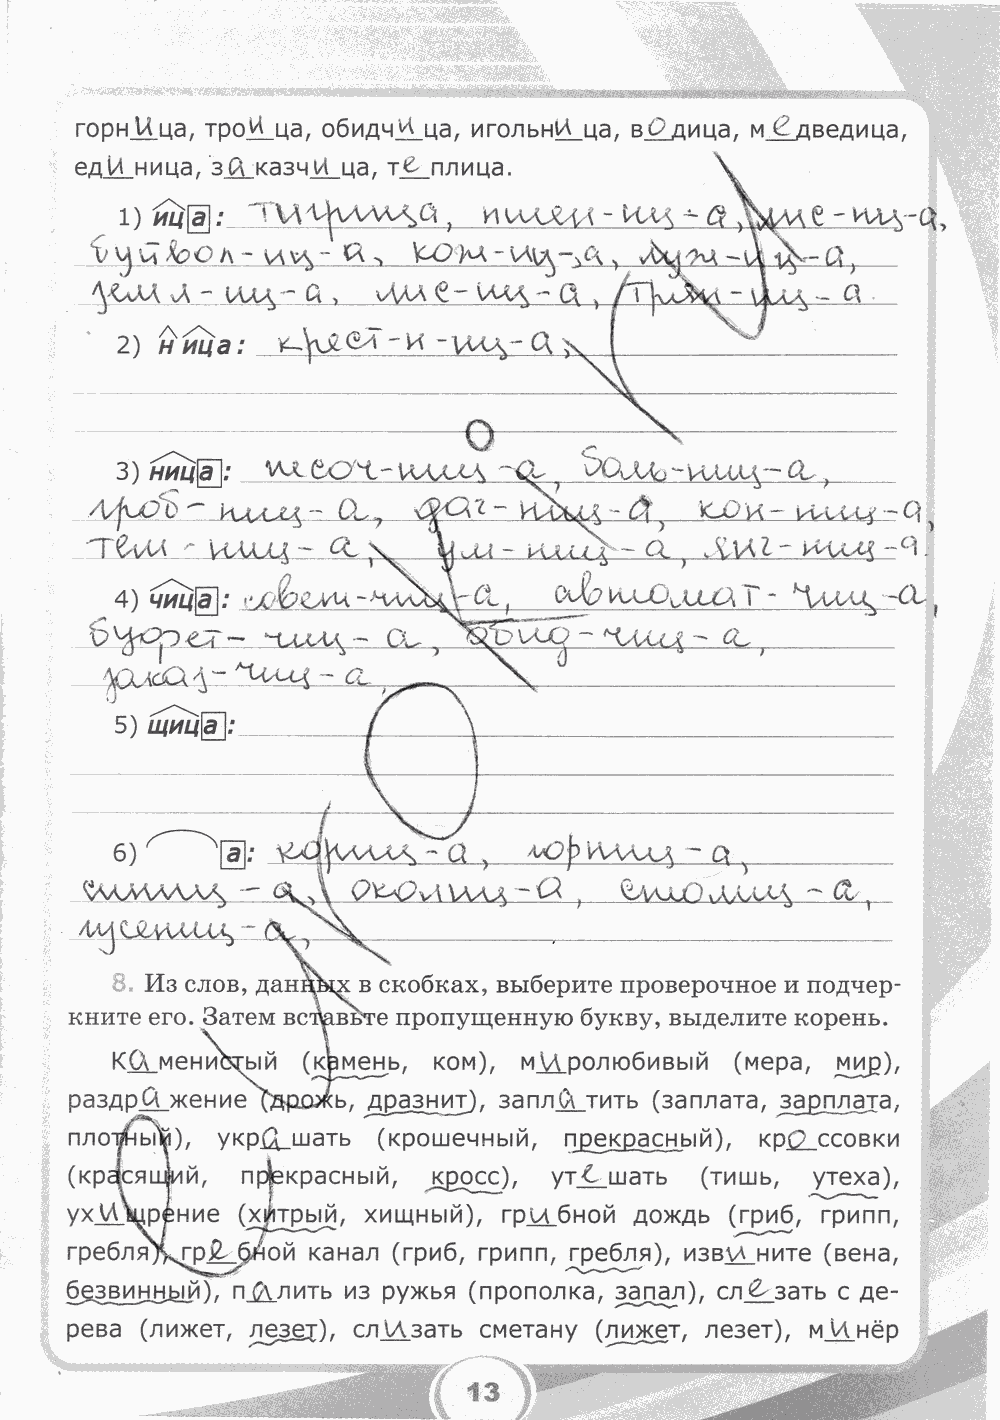 горница, троица, обидчица, игольница, водица, медведица,
единица, заказчица, теплица.
1) ица: тигрица, пшен-иц-а, лис-иц-а,
буйвол-иц-а, кож-иц-а, луж-иц-а,
земл-иц-а, лис-иц-а, тряп-иц-а
2) ница: крест-н-иц-а,
3) ница: песоч-ниц-а, боль-ниц-а,
гроб-ниц-а, дач-ниц-а, кон-ниц-а,
тем-ниц-а, ум-ниц-а,
4) чица: совет-чиц-а, автомат-чиц-а,
буфет-чиц-а, обид-чиц-а,
заказ-чиц-а,
5) щица:
6) а: кориц-а, горниц-а,
синиц-а, околиц-а, столиц-а,
гусениц-а,
8. Из слов, данных в скобках, выберите проверочное и подчер-
кните его. Затем вставьте пропущенную букву, выделите корень.
Каменистый (камень, ком), миролюбивый (мера, мир),
раздражение (дрожь, дразнит), заплатить (заплата, зарплата,
плотный), украшать (крошечный, прекрасный), кроссовки
(красящий, прекрасный, кросс), утешать (тишь, утеха),
ухищрение (хитрый, хищный), грибной дождь (гриб, грипп,
гребля), гребной канал (гриб, грипп, гребля), извините (вена,
безвинный), палить из ружья (прополка, запал), слезать с де-
рева (лижет, лезет), слизать сметану (лижет, лезет), минёр
13